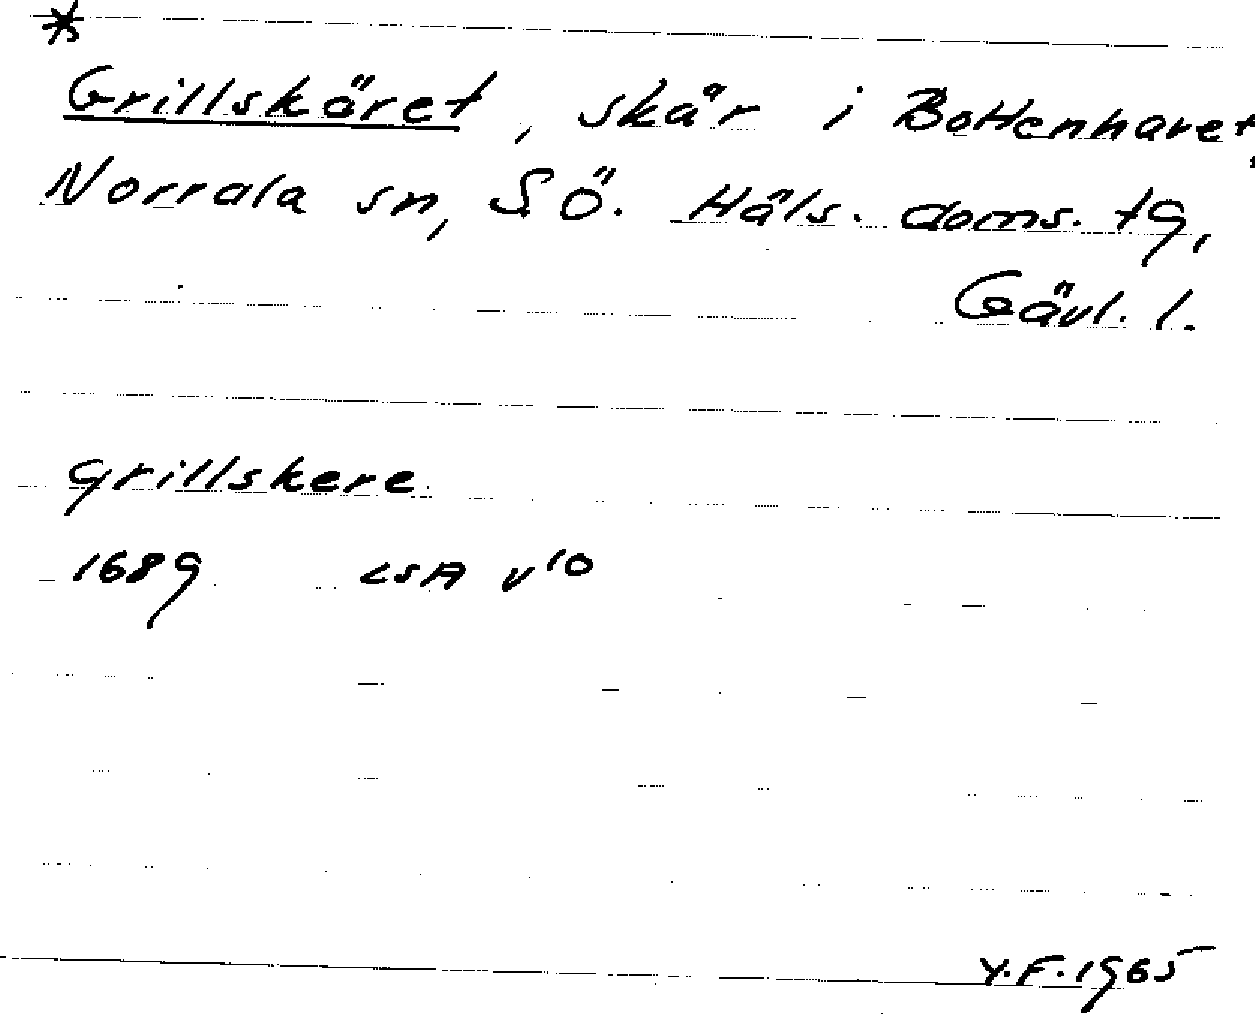 *
Grillskäret, skär i Bottenhavet,
Norrala sn, S.Ö. Häls. doms. tg,
Gävl. l.
grillskere
1689 LSA V10
Y.F. 1965